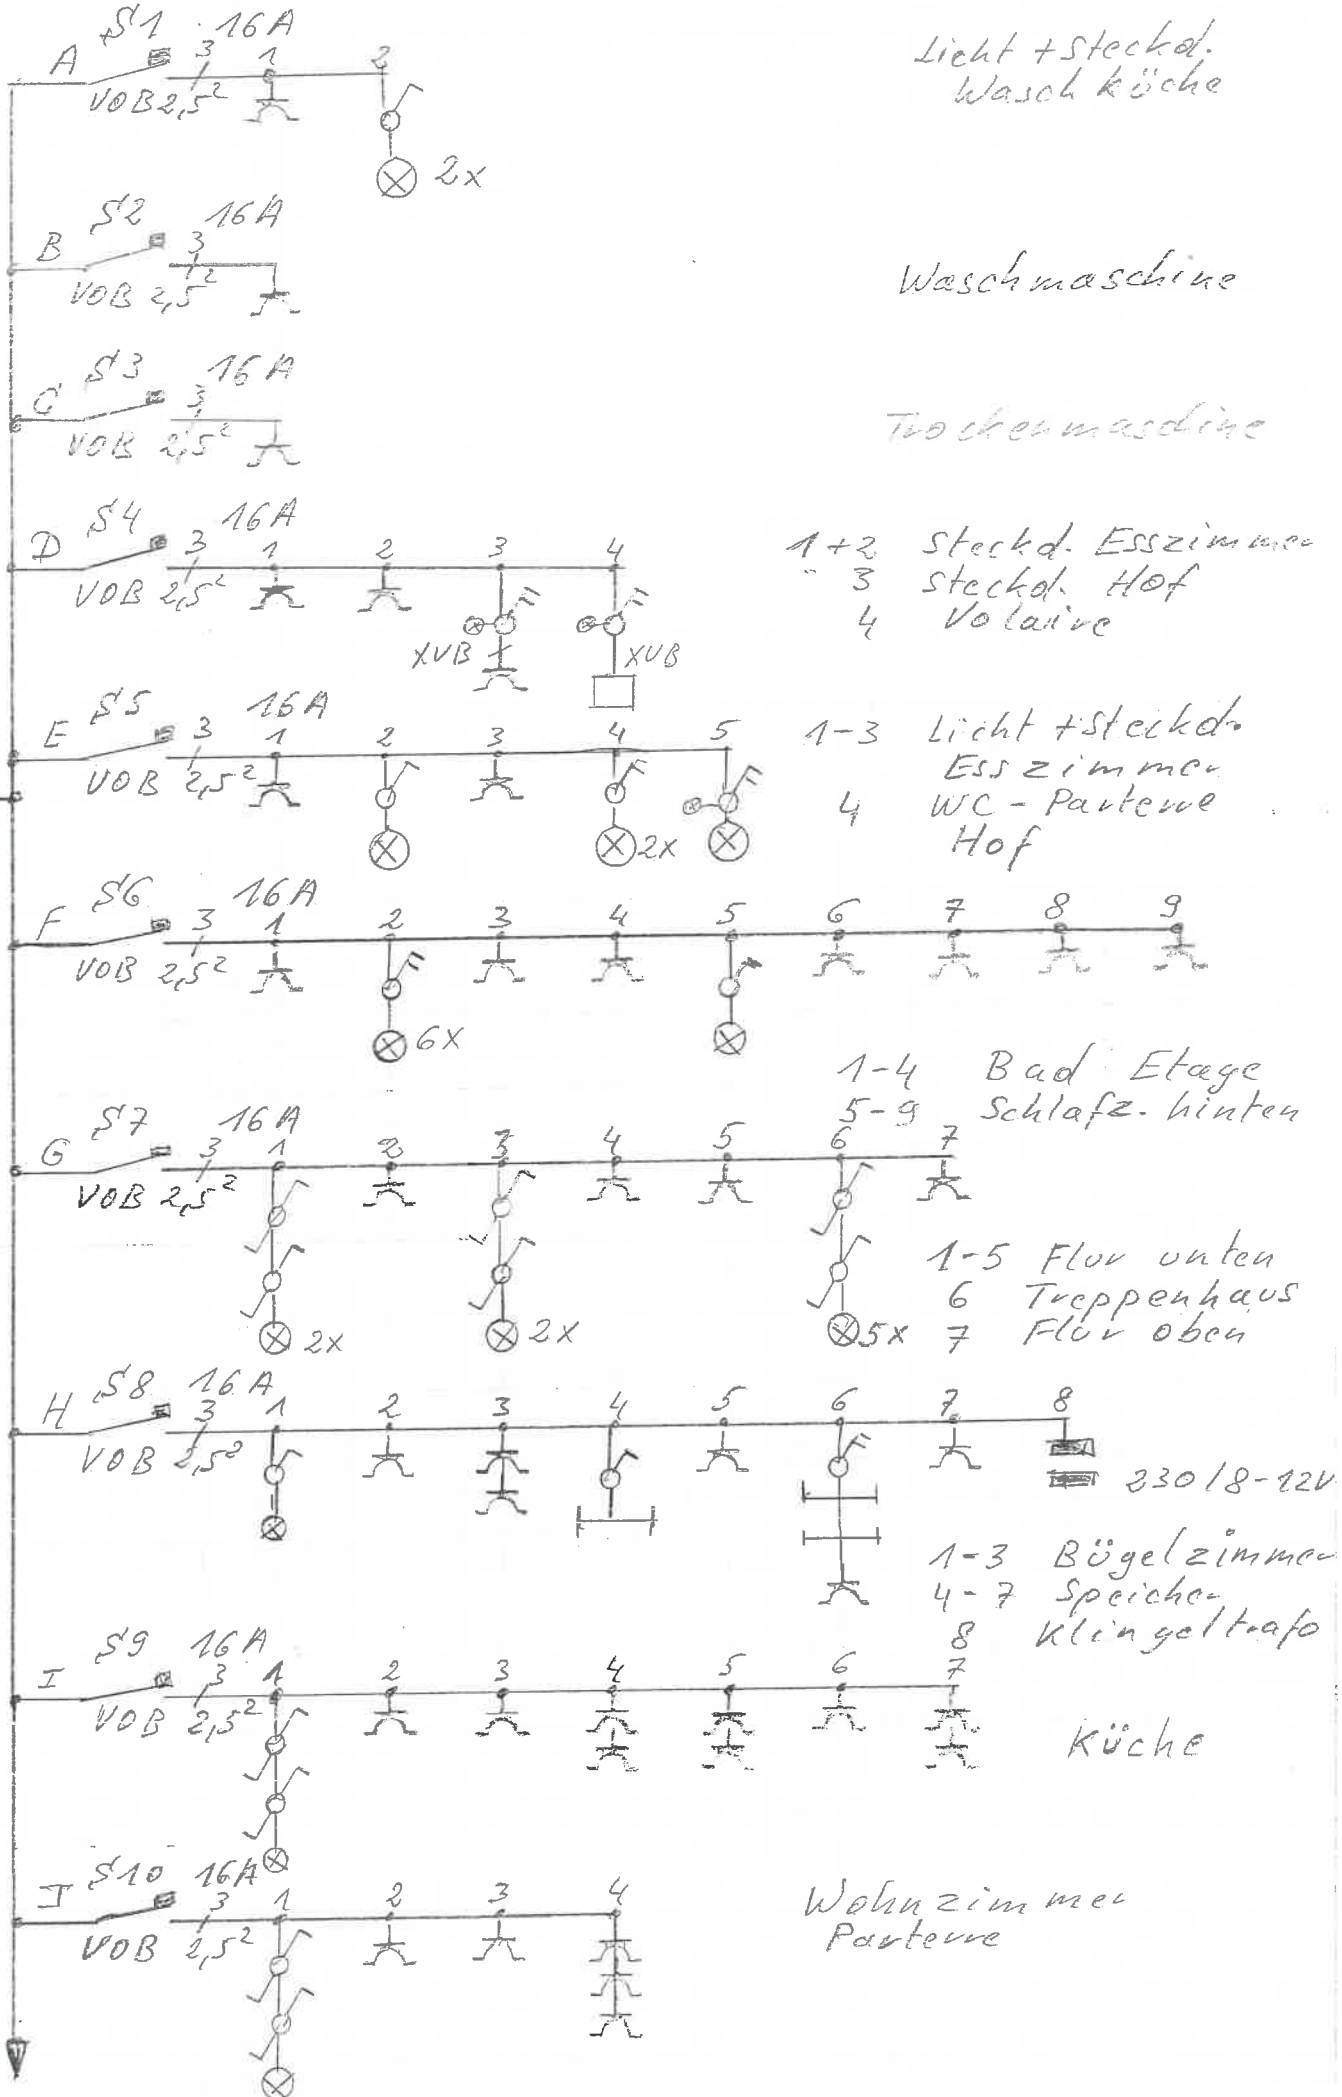 S1 16A
A 3 1 2
VOB 2,5²
2x
Licht + Steckd.
Waschküche
S2 16A
B 3
VOB 2,5²
Waschmaschine
S3 16A
C 3
VOB 2,5²
Trockenmaschine
S4 16A
D 3 1 2 3 4
VOB 2,5²
XVB XVB
1+2 Steckd. Esszimmer
3 Steckd. Hof
4 Volaire
S5 16A
E 3 1 2 3 4 5
VOB 2,5²
2x
1-3 Licht + Steckd.
Esszimmer
4 WC - Parterre
Hof
S6 16A
F 3 1 2 3 4 5 6 7 8 9
VOB 2,5²
6x
1-4 Bad Etage
5-9 Schlafz. hinten
S7 16A
G 3 1 2 3 4 5 6 7
VOB 2,5²
2x 2x 5x
1-5 Flur unten
6 Treppenhaus
7 Flur oben
S8 16A
H 3 1 2 3 4 5 6 7 8
VOB 2,5²
230/8-12V
1-3 Bügelzimmer
4-7 Speicher
8 Klingeltrafo
S9 16A
I 3 1 2 3 4 5 6 7
VOB 2,5²
Küche
S10 16A
J 3 1 2 3 4
VOB 2,5²
Wohnzimmer
Parterre